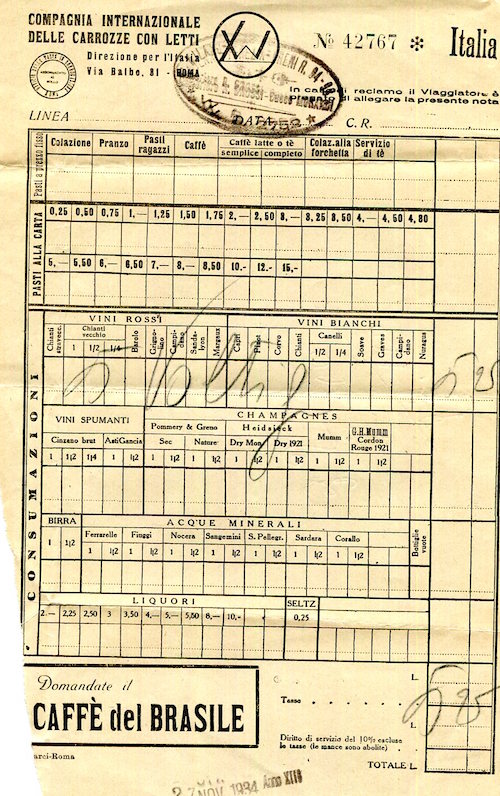 COMPAGNIA INTERNAZIONALE
DELLE CARROZZE CON LETTI
Direzione per l'Italia
Via Balbo, 81 - ROMA
№ 42767 ✻ Italia
In caso di reclamo il Viaggiatore è
di allegare la presente nota
LINEA
DATA
C. R.
Pasti a prezzo fisso
Colazione Pranzo Pasti ragazzi Caffè Caffè latte o tè semplice completo Colaz. alla forchetta Servizio di tè
PASTI ALLA CARTA
0,25 0,50 0,75 1,— 1,25 1,50 1,75 2,— 2,50 3,— 3,25 3,50 4,— 4,50 4,80
5,— 5,50 6,— 6,50 7,— 8,— 8,50 10.- 12.- 15.-
CONSUMAZIONI
VINI ROSSI VINI BIANCHI
Chianti stravecc. Chianti vecchio 1 1/2 1/4 Barolo Grignolino Campidano Sandalyon Margaux Capri Pinot Corvo Chianti Canelli 1/2 1/4 Soave Graves Campidano Nuragus
5 25
VINI SPUMANTI CHAMPAGNES
Cinzano brut Asti Gancia Pommery & Greno Sec Nature Heidsieck Dry Mon. Dry 1921 Mumm G.H. Mumm Cordon Rouge 1921
1 1|2 1|4 1 1|2 1 1|2 1 1|2 1 1|2 1 1|2 1 1|2 1 1|2
BIRRA ACQUE MINERALI
Ferrarelle Fiuggi Nocera Sangemini S. Pellegr. Sardara Corallo
1 1|2 1 1|2 1 1|2 1 1|2 1 1|2 1 1|2 1 1|2 1 1|2
Bottiglie vuote
LIQUORI SELTZ
2.— 2,25 2,50 3 3,50 4,— 5,— 5,50 8,— 10,- 0,25
L.
Domandate il
CAFFÈ del BRASILE
Tasse
5 25
L.
Diritto di servizio del 10% escluse
le tasse (le mance sono abolite)
TOTALE L.
arci-Roma
27 NOV. 1934 Anno XIII